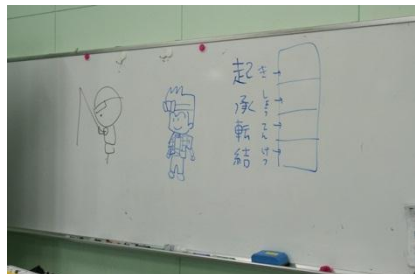 起き
承しょう
転てん
結けつ